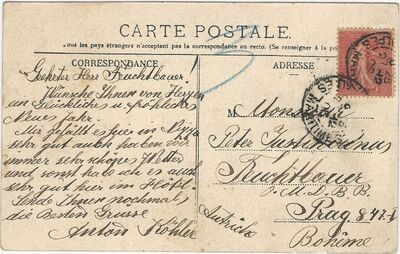 CARTE POSTALE.
Tous les pays étrangers n'acceptent pas la correspondance au recto. (Se renseigner à la poste)
CORRESPONDANCE
Geehrter Herr Fruchtbauer.
Wünsche Ihnen von Herzen
ein Glückliches u fröhliches
Neues Jahr.
Mir gefällt es hier in Nizza
sehr gut auch haben wir
immer sehr schönes Wetter
und sonst habe ich es auch
sehr gut hier im Hôtel
Sende Ihnen nochmals
die Besten Grüsse
Anton Köhler
ADRESSE
M Monsieur
Peter
Fruchtbauer
Prag
Autriche
Bohême